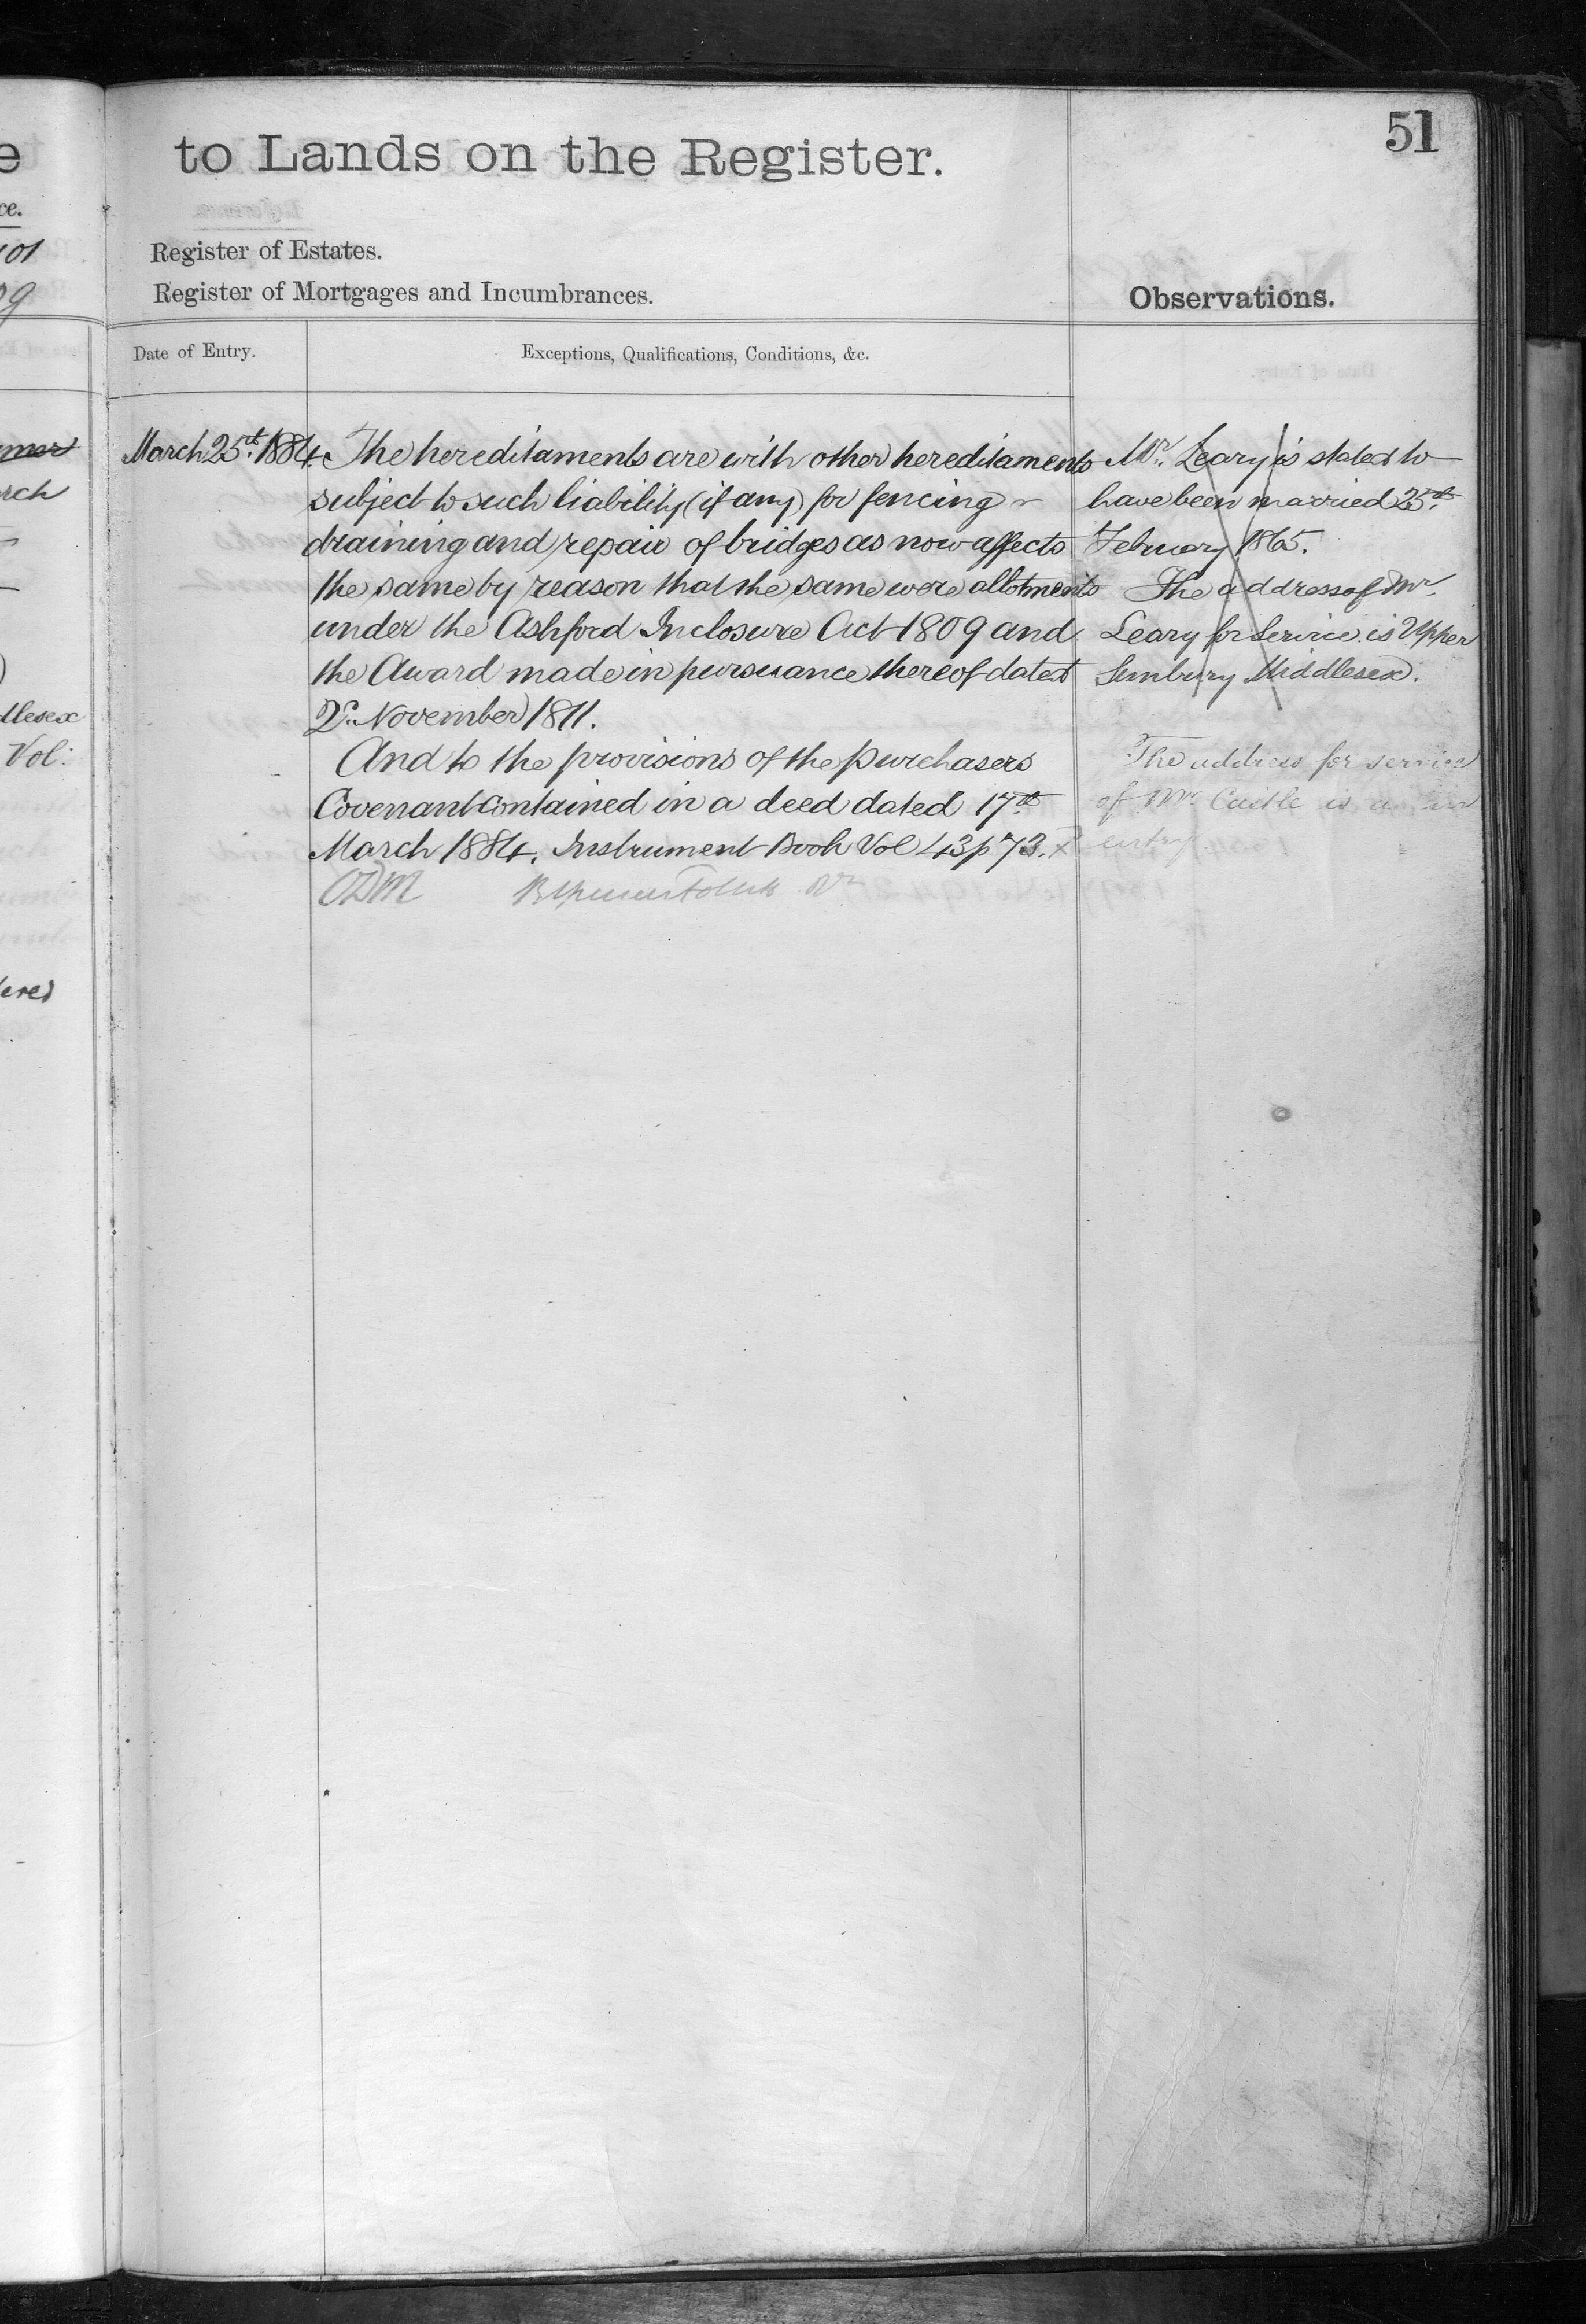 51
to Lands on the Register.
Register of Estates.
Register of Mortgages and Incumbrances.
Observations.
Date of Entry.
Exceptions, Qualifications, Conditions, &c.
March 25th 1884.
The hereditaments are with other hereditaments
subject to such liability (if any) for fencing
draining and repair of bridges as now affects
the same by reason that the same were allotments
under the Ashford Inclosure Act 1809 and
the Award made in pursuance thereof dated
November 1811.
And to the provisions of the purchasers
Covenant contained in a deed dated 17th
March 1884. Instrument Book Vol 43 p 73.
Mr. Leary is stated to
have been married 25th
February 1865.
The address of Mr.
Leary for Service is Upper
Sunbury Middlesex.
The address for service
of Mr. Castle is as in
entry
e
ce.
101
09
rch
dlesex
Vol:
ered